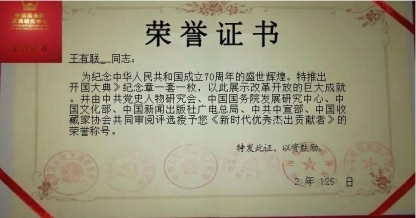 荣誉证书
王有联__同志：
为纪念中华人民共和国成立70周年的盛世辉煌。特推出
开国大典》纪念章一套一枚，以此展示改革开放的巨大成就
。并由中共党史人物研究会、中国国务院发展研究中心、中
国文化部、中国新闻出版社广电总局、中共中宣部、中国收
藏家协会共同审阅评选授予您《新时代优秀杰出贡献者》的
荣誉称号。
特发此证、以资鼓励。